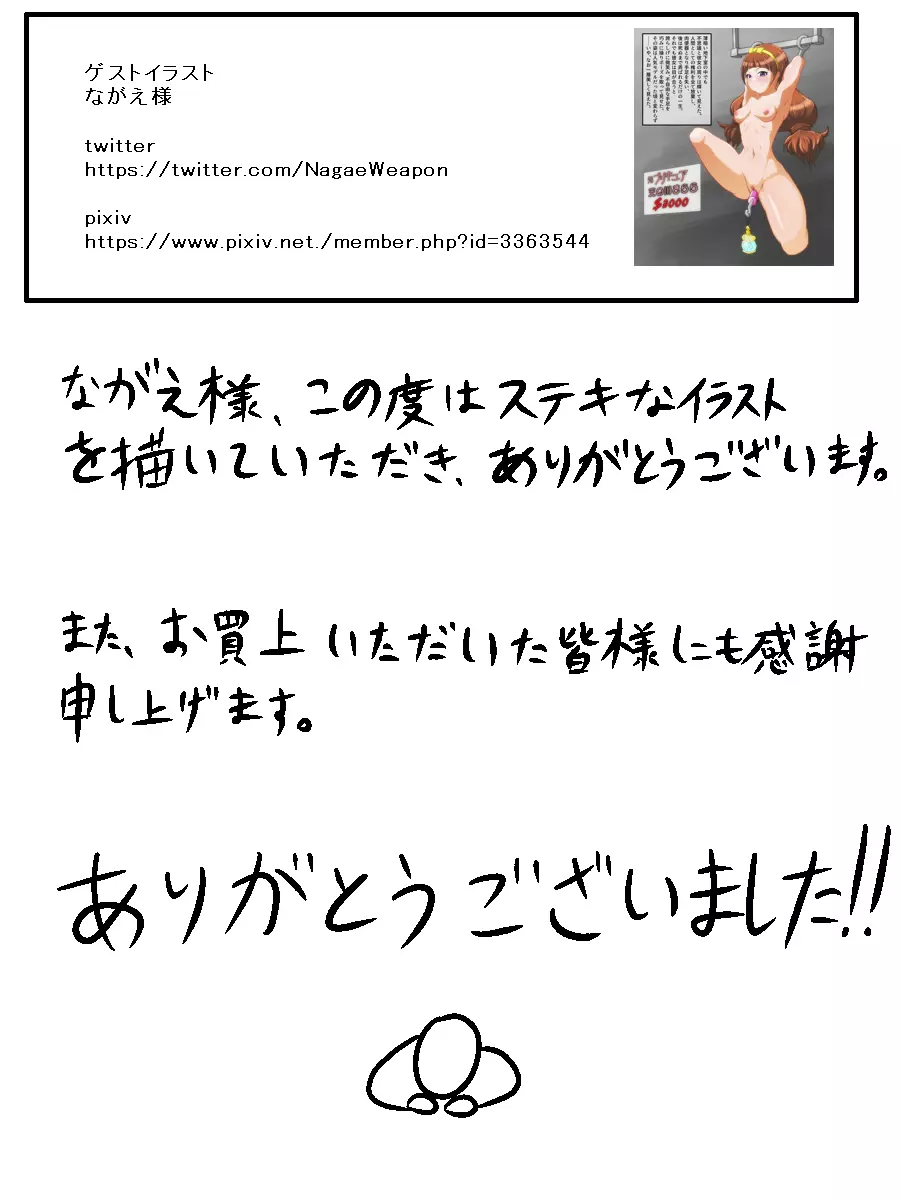 ゲストイラスト
ながえ様
twitter
https://twitter.com/NagaeWeapon
pixiv
https://www.pixiv.net./member.php?id=3363544
ながえ様、この度はステキなイラスト
を描いていただき、ありがとうございます。
また、お買上いただいた皆様にも感謝
申し上げます。
ありがとうございました!!